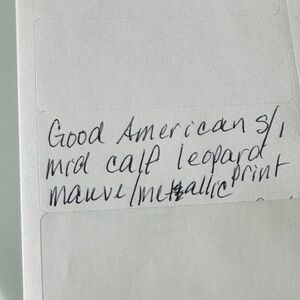 Good American s/1
mid calf leopard
mauve/metallic print